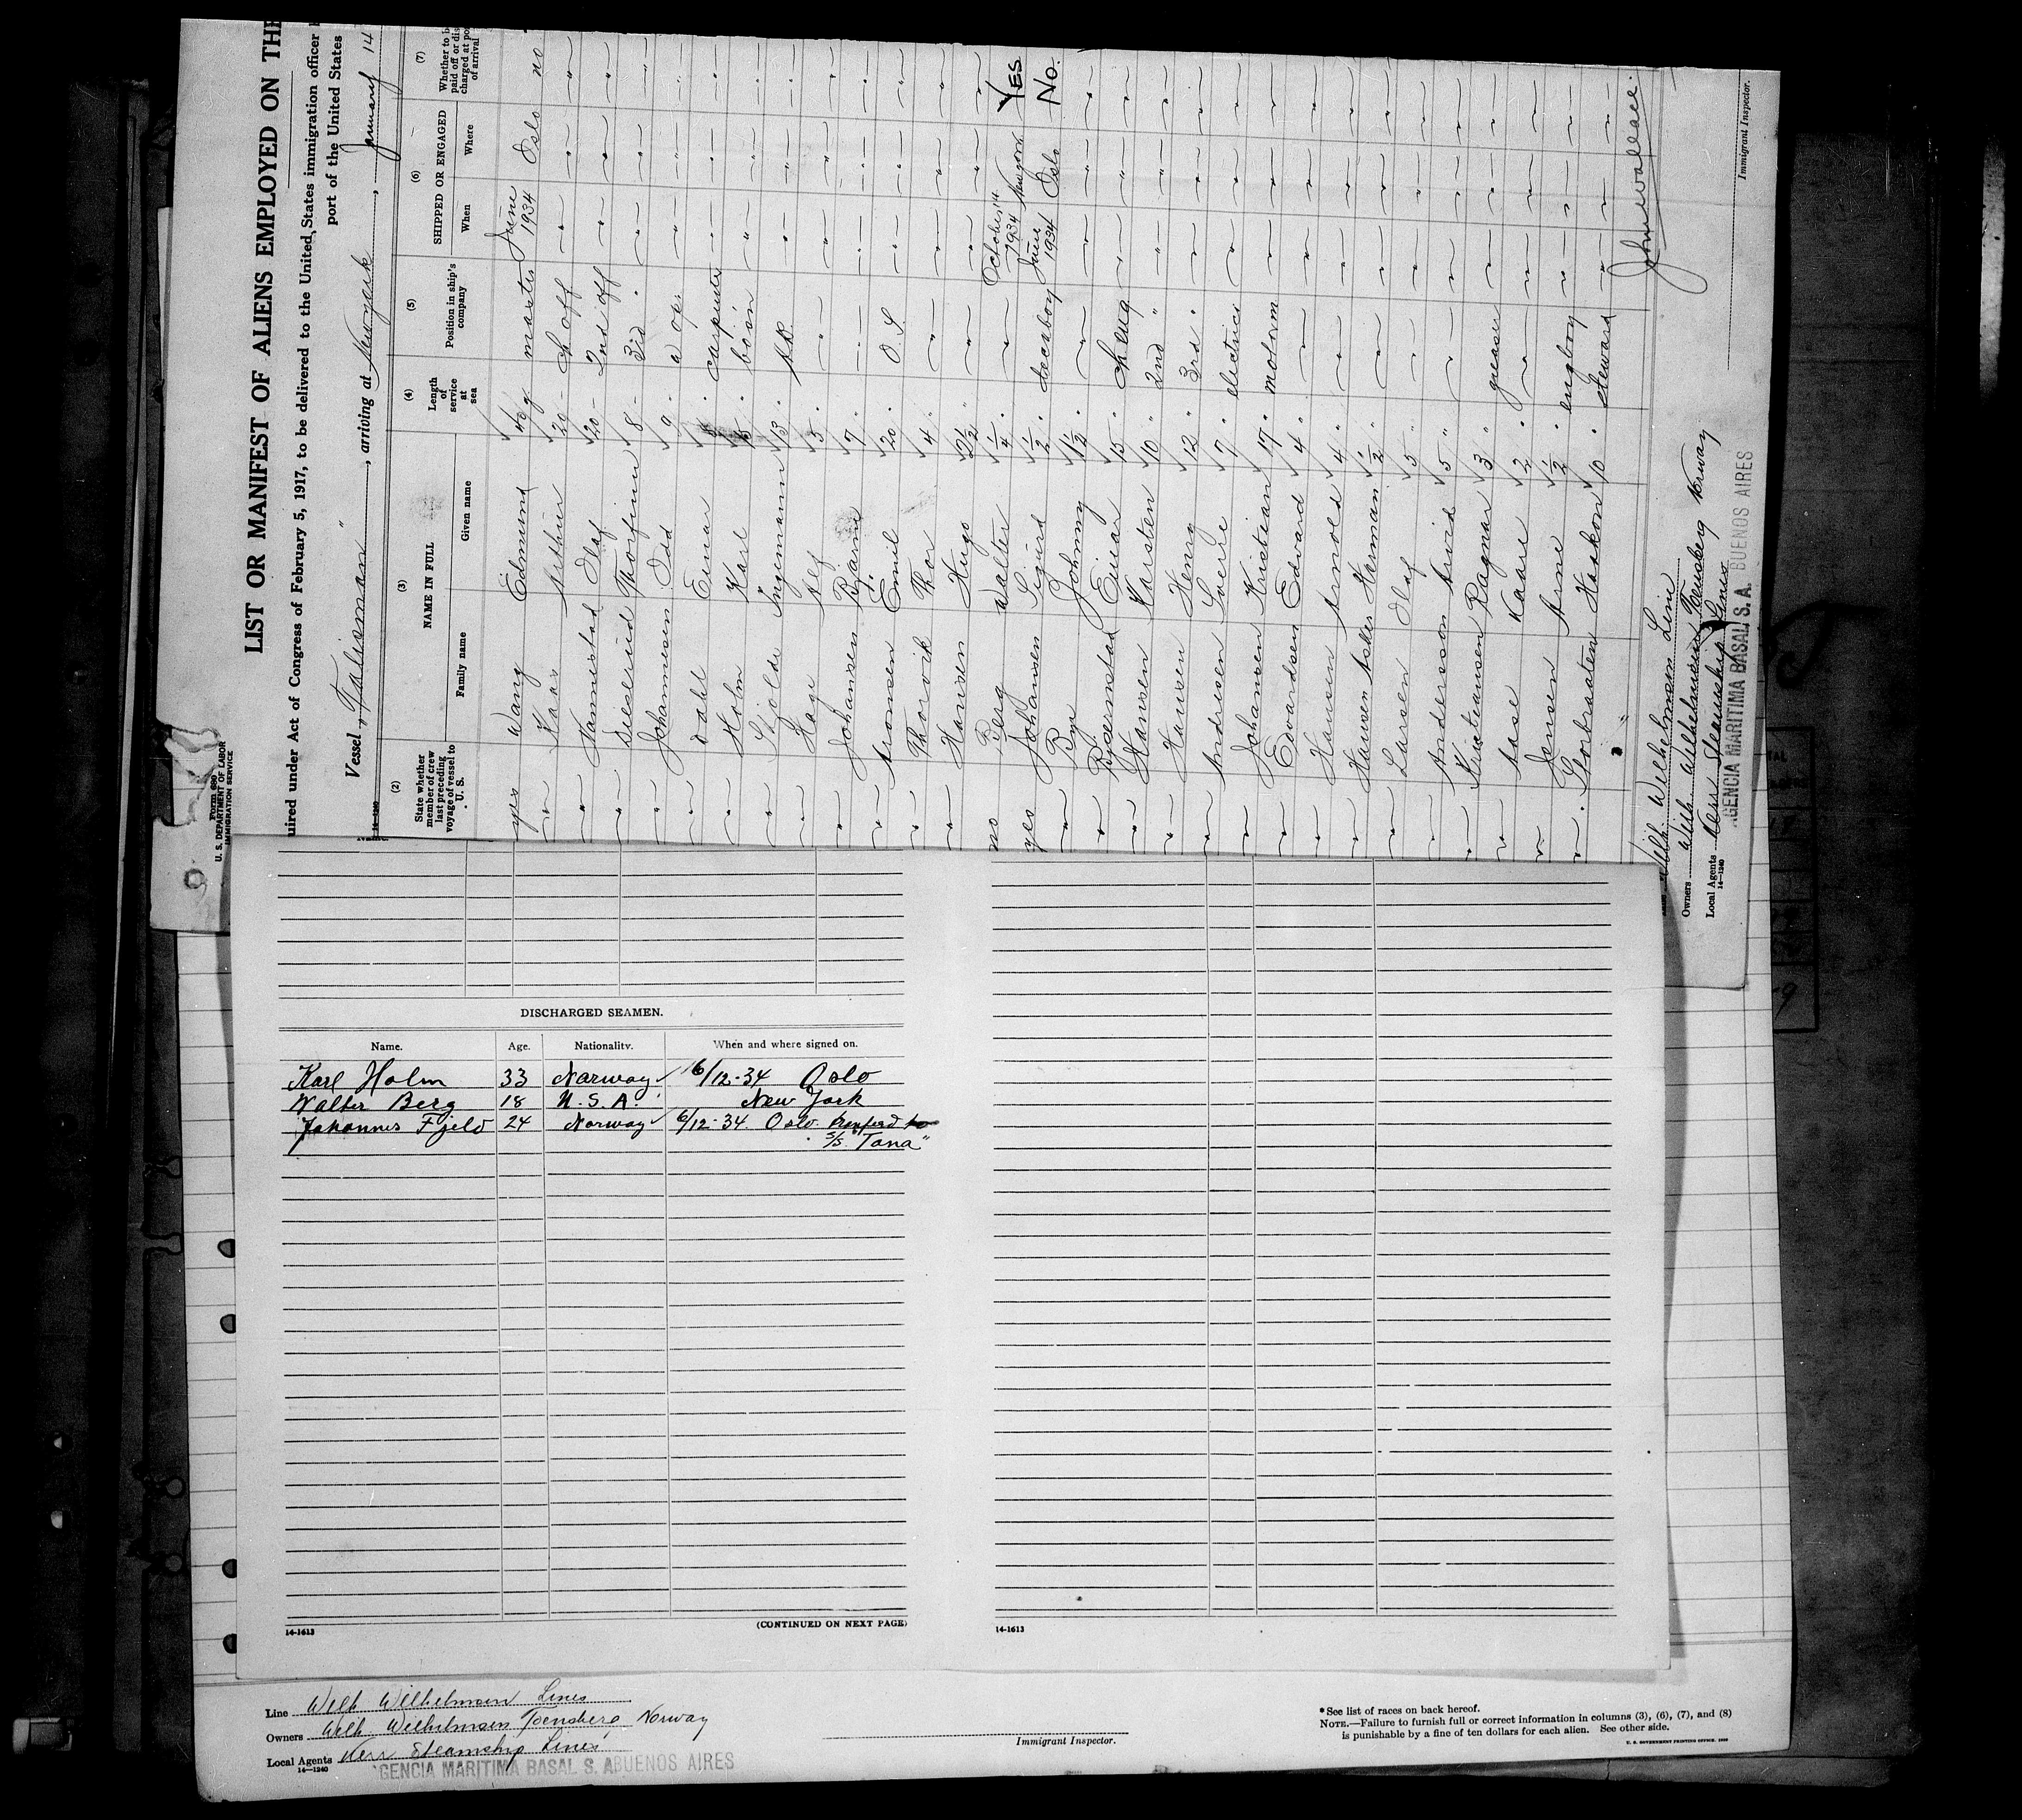 Form 680
U. S. DEPARTMENT OF LABOR
IMMIGRATION SERVICE
LIST OR MANIFEST OF ALIENS EMPLOYED ON THE
uired under Act of Congress of February 5, 1917, to be delivered to the United States immigration officer
port of the United States
Vessel "Talisman", arriving at Newyork, January 14
14-1240
(2) (3) (4) (5) (6) (7)
State whether member of crew last preceding voyage of vessel to U. S.
NAME IN FULL
Family name Given name
Length of service at sea
Position in ship's company
SHIPPED OR ENGAGED
When Where
Whether to b paid off or dis charged at po of arrival
yes Wang Edmund 40 y master June 1934 Oslo no
" Kaas Arthur 20 - ch off " " "
" Hamestad Olaf 20 - 2nd off " " "
" Dieserud Thorfinn 8 - 3rd " " " "
" Johannesen Odd 9 " w ope " " "
" Dahl Einar " carpenter " " "
" Holm Karl 15 " bo'sn " " "
" Skjolde Ingemann 13 " AB " " "
" Hage Alf 5 " " " " "
" Johansen Bjarne 7 " " " " "
" Aronsen Emil 20 " O. S. " " "
" Thorvik Thor 4 " " " " "
" Hansen Hugo 2½ " " " " "
no Berg Walter ¼ " " October 14 1934 Newyork YES
yes Johansen Sigurd ½ " decksboy June 1934 Oslo No.
" Bye Johnny 1½ " " " " "
" Bjoernstad Einar 15 " ch eng " " "
" Hansen Karsten 10 " 2nd " " " "
" Hansen Henry 12 " 3rd " " " "
" Andresen Sverre 7 " electrici " " "
" Johansen Kristian 17 " motorm " " "
" Edvardsen Edvard 4 " " " " "
" Hansen Arnold 4 " " " " "
" Hansen Asller Herman ½ " " " " "
" Larsen Olaf 5 " " " " "
" Andersson Arvid 5 " " " " "
" Kristiansen Ragnar 3 " greaser " " "
" Aase Kaare 2 " " " " "
" Jensen Arne ½ " engboy " " "
" Storbraaten Haakon 10 " steward " " "
Wilh. Wilhelmsen Line
Owners Wilh Wilhelmsen Toensberg Norway
Local Agents Kerr Steamship Lines
14-1240
AGENCIA MARITIMA BASAL S. A. BUENOS AIRES
John Wallace.
Immigrant Inspector.
DISCHARGED SEAMEN.
Name. Age. Nationality. When and where signed on.
Karl Holm 33 Norway 6/12-34 Oslo
Walter Berg 18 U. S. A. New York
Johannes Fjeld 24 Norway 6/12-34 Oslo. transferd to
S/S "Tana"
14-1613
(CONTINUED ON NEXT PAGE)
14-1613
Line Wilh Wilhelmsen Lines
Owners Wilh Wilhelmsen Toensberg, Norway
Local Agents Kerr Steamship Lines
14-1240
GENCIA MARITIMA BASAL S. A BUENOS AIRES
Immigrant Inspector.
*See list of races on back hereof.
NOTE.—Failure to furnish full or correct information in columns (3), (6), (7), and (8)
is punishable by a fine of ten dollars for each alien. See other side.
U. S. GOVERNMENT PRINTING OFFICE